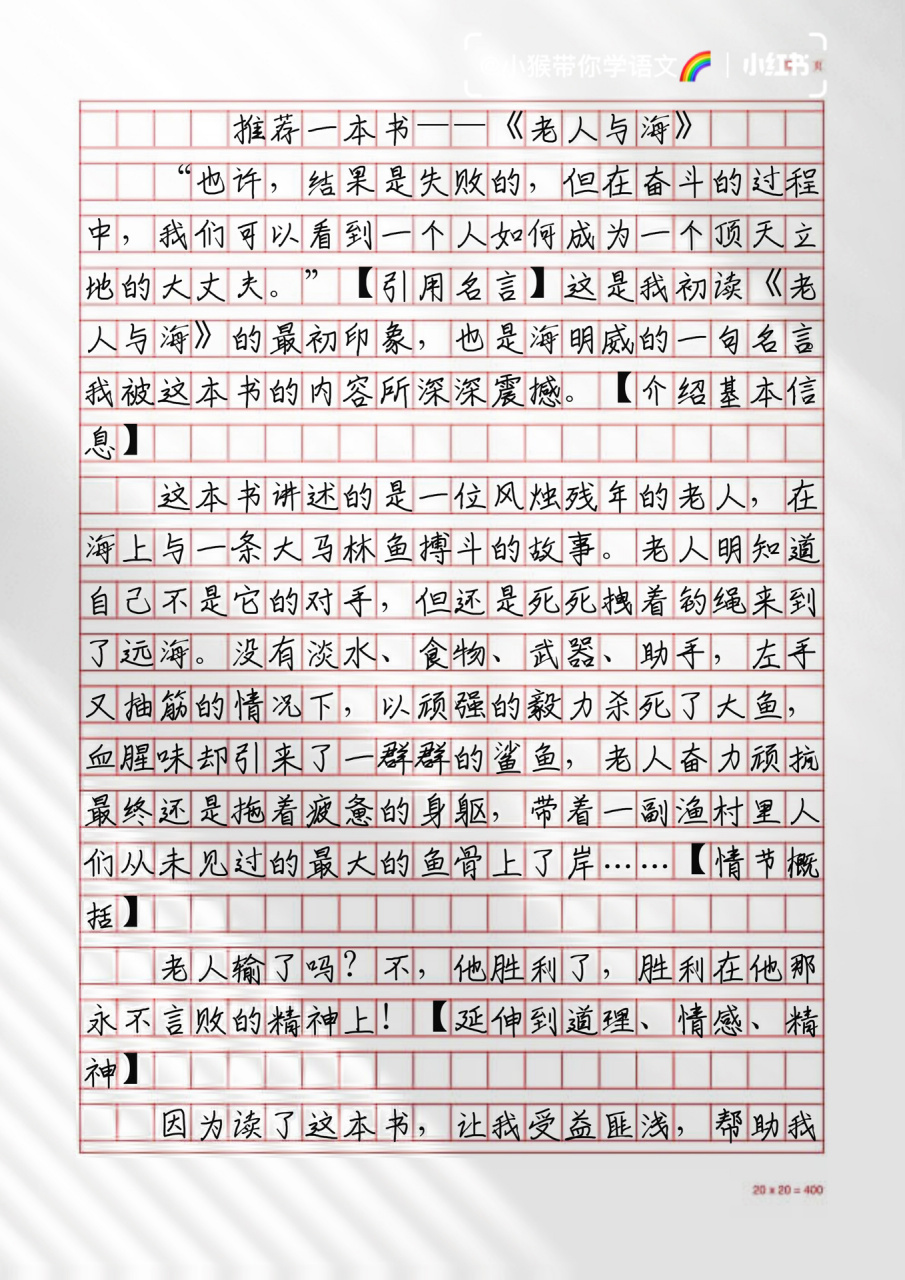 小猴带你学语文🌈 | 小红书 页
推荐一本书——《老人与海》
“也许，结果是失败的，但在奋斗的过程
中，我们可以看到一个人如何成为一个顶天立
地的大丈夫。”【引用名言】这是我初读《老
人与海》的最初印象，也是海明威的一句名言
我被这本书的内容所深深震撼。【介绍基本信
息】
这本书讲述的是一位风烛残年的老人，在
海上与一条大马林鱼搏斗的故事。老人明知道
自己不是它的对手，但还是死死拽着钓绳来到
了远海。没有淡水、食物、武器、助手，左手
又抽筋的情况下，以顽强的毅力杀死了大鱼，
血腥味却引来了一群群的鲨鱼，老人奋力顽抗
最终还是拖着疲惫的身躯，带着一副渔村里人
们从未见过的最大的鱼骨上了岸……【情节概
括】
老人输了吗？不，他胜利了，胜利在他那
永不言败的精神上！【延伸到道理、情感、精
神】
因为读了这本书，让我受益匪浅，帮助我
20 x 20 = 400